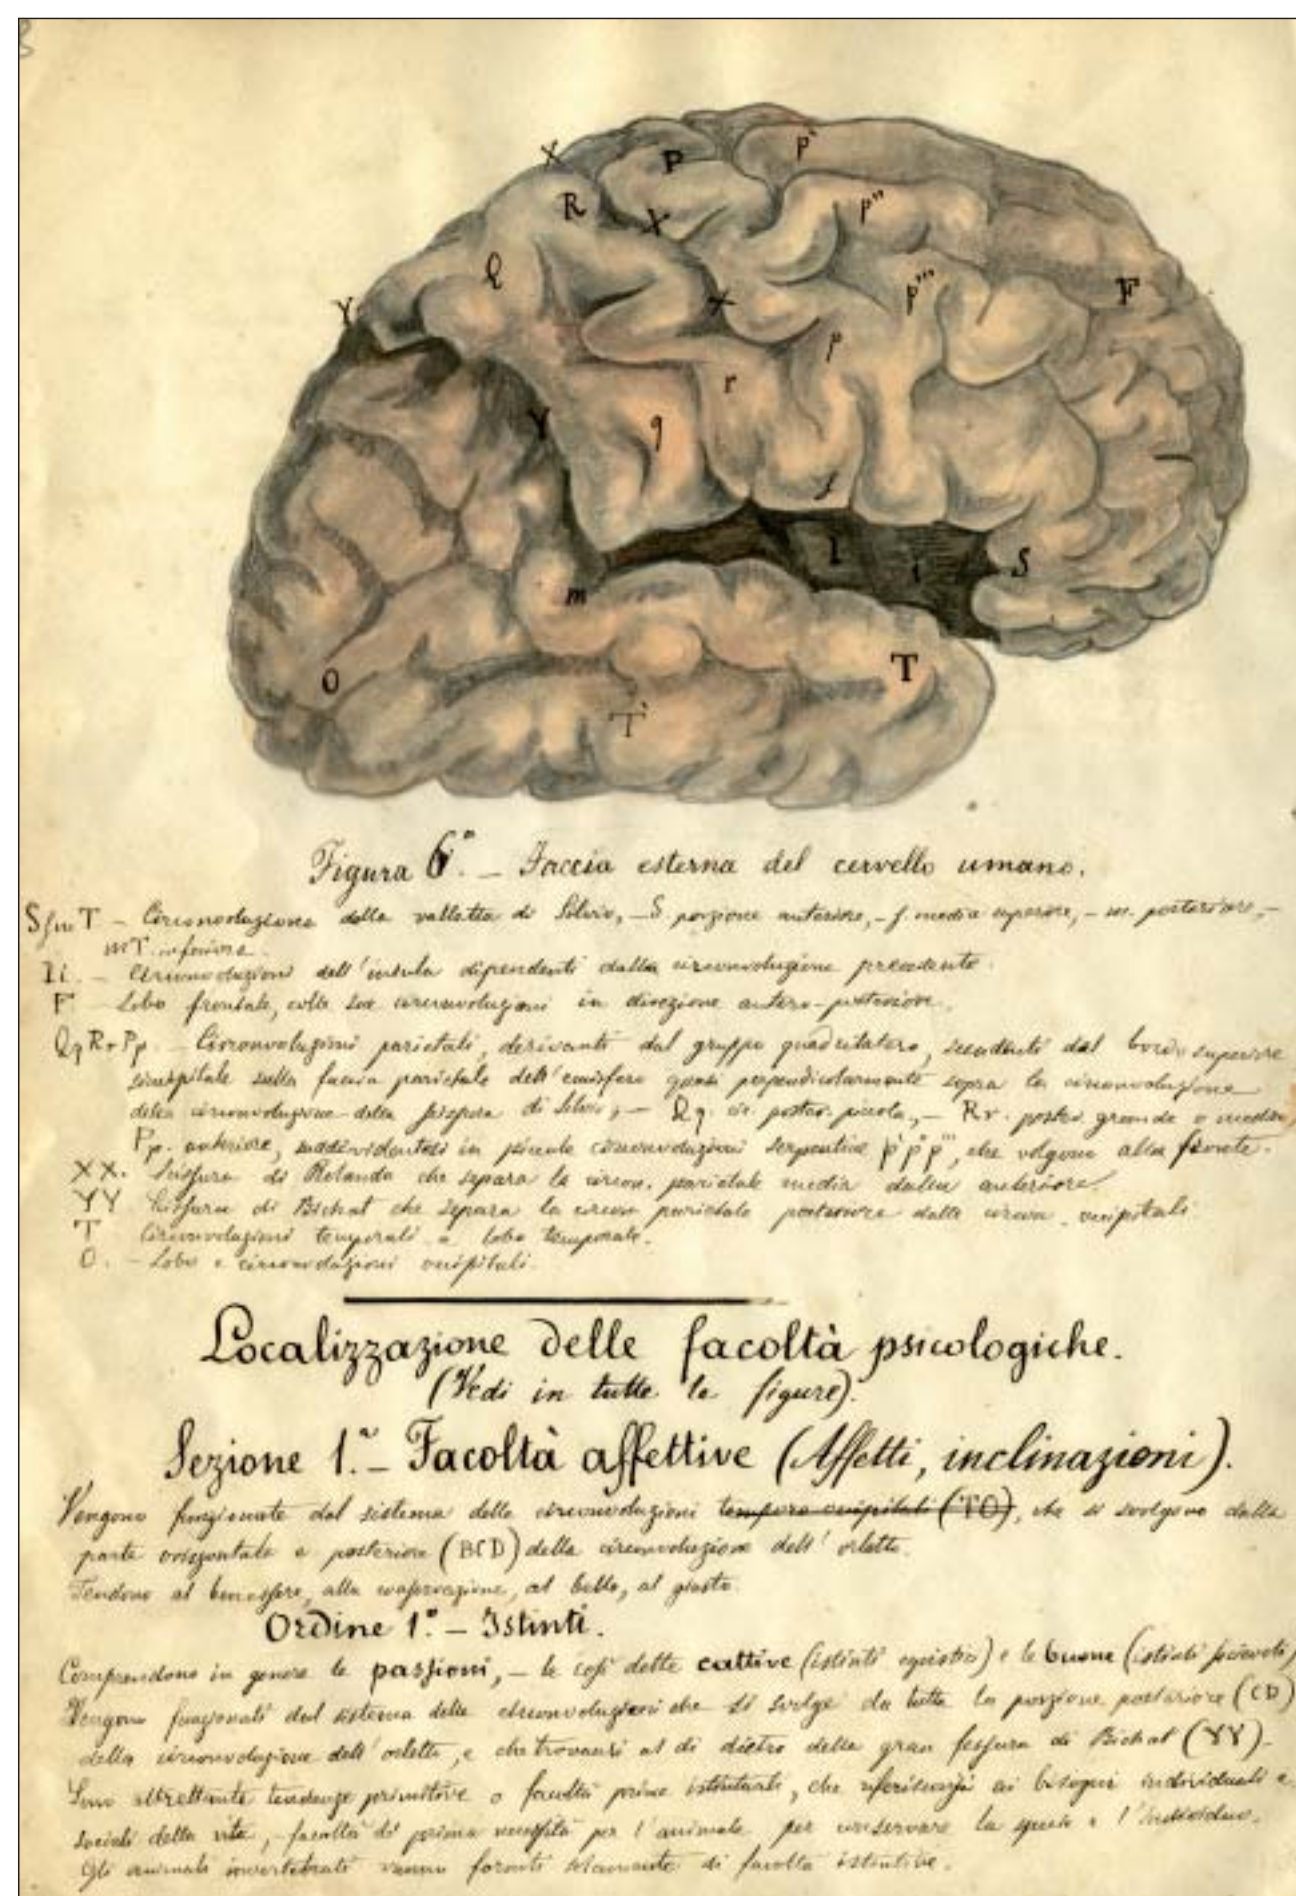 X
P
p'
R
X
p''
Q
p'''
F
Y
X
p
r
Y
q
f
I
i
S
m
O
T
T'
Figura 6ª. – Faccia esterna del cervello umano.
SfmT – Circonvoluzione della valletta di Silvio, – S porzione anteriore, – f. media superiore, – m. posteriore, –
mT. inferiore.
Ii. – Circonvoluzioni dell'insula dipendenti dalla circonvoluzione precedente.
F – Lobo frontale, colle sue circonvoluzioni in direzione antero-posteriore.
Qq Rr Pp. – Circonvoluzioni parietali, derivanti dal gruppo quadrilatero, scendenti dal bordo superiore
sulla faccia parietale dell'emisfero quasi perpendicolarmente sopra la circonvoluzione
della circonvoluzione della scissura di Silvio, – Qq. cir. poster. piccola, – Rr. poster. grande o media,
Pp. anteriore, suddividentesi in piccole circonvoluzioni serpentine p' p'' p''', che volgono alla fronte.
XX. Scissura di Rolando che separa la circon. parietale media dalla anteriore.
YY Scissura di Bichat che separa la circon parietale posteriore dalle circon. occipitali.
T Circonvoluzioni temporali o lobo temporale.
O. – Lobo e circonvoluzioni occipitali.
Localizzazione delle facoltà psicologiche.
(Vedi in tutte le figure).
Sezione 1.ª – Facoltà affettive (Affetti, inclinazioni).
Vengono funzionate dal sistema delle circonvoluzioni temporo occipitali (TO), che si svolgono dalla
parte orizzontale e posteriore (BCD) della circonvoluzione dell'orletto.
Tendono al benessere, alla conservazione, al bello, al giusto.
Ordine 1.º – Istinti.
Comprendono in genere le passioni, – le così dette cattive (istinti egoistici) e le buone (istinti sociali)
Vengono funzionati dal sistema delle circonvoluzioni che si svolge da tutta la porzione posteriore (CD)
della circonvoluzione dell'orletto, e che trovansi al di dietro della gran fessura di Bichat (YY).
Sono altrettante tendenze primitive o facoltà prime istintuali, che riferisconsi ai bisogni individuali e
sociali della vita, – facoltà di prima necessità per l'animale, per conservare la specie e l'individuo.
Gli animali invertebrati vanno forniti solamente di facoltà istintive.